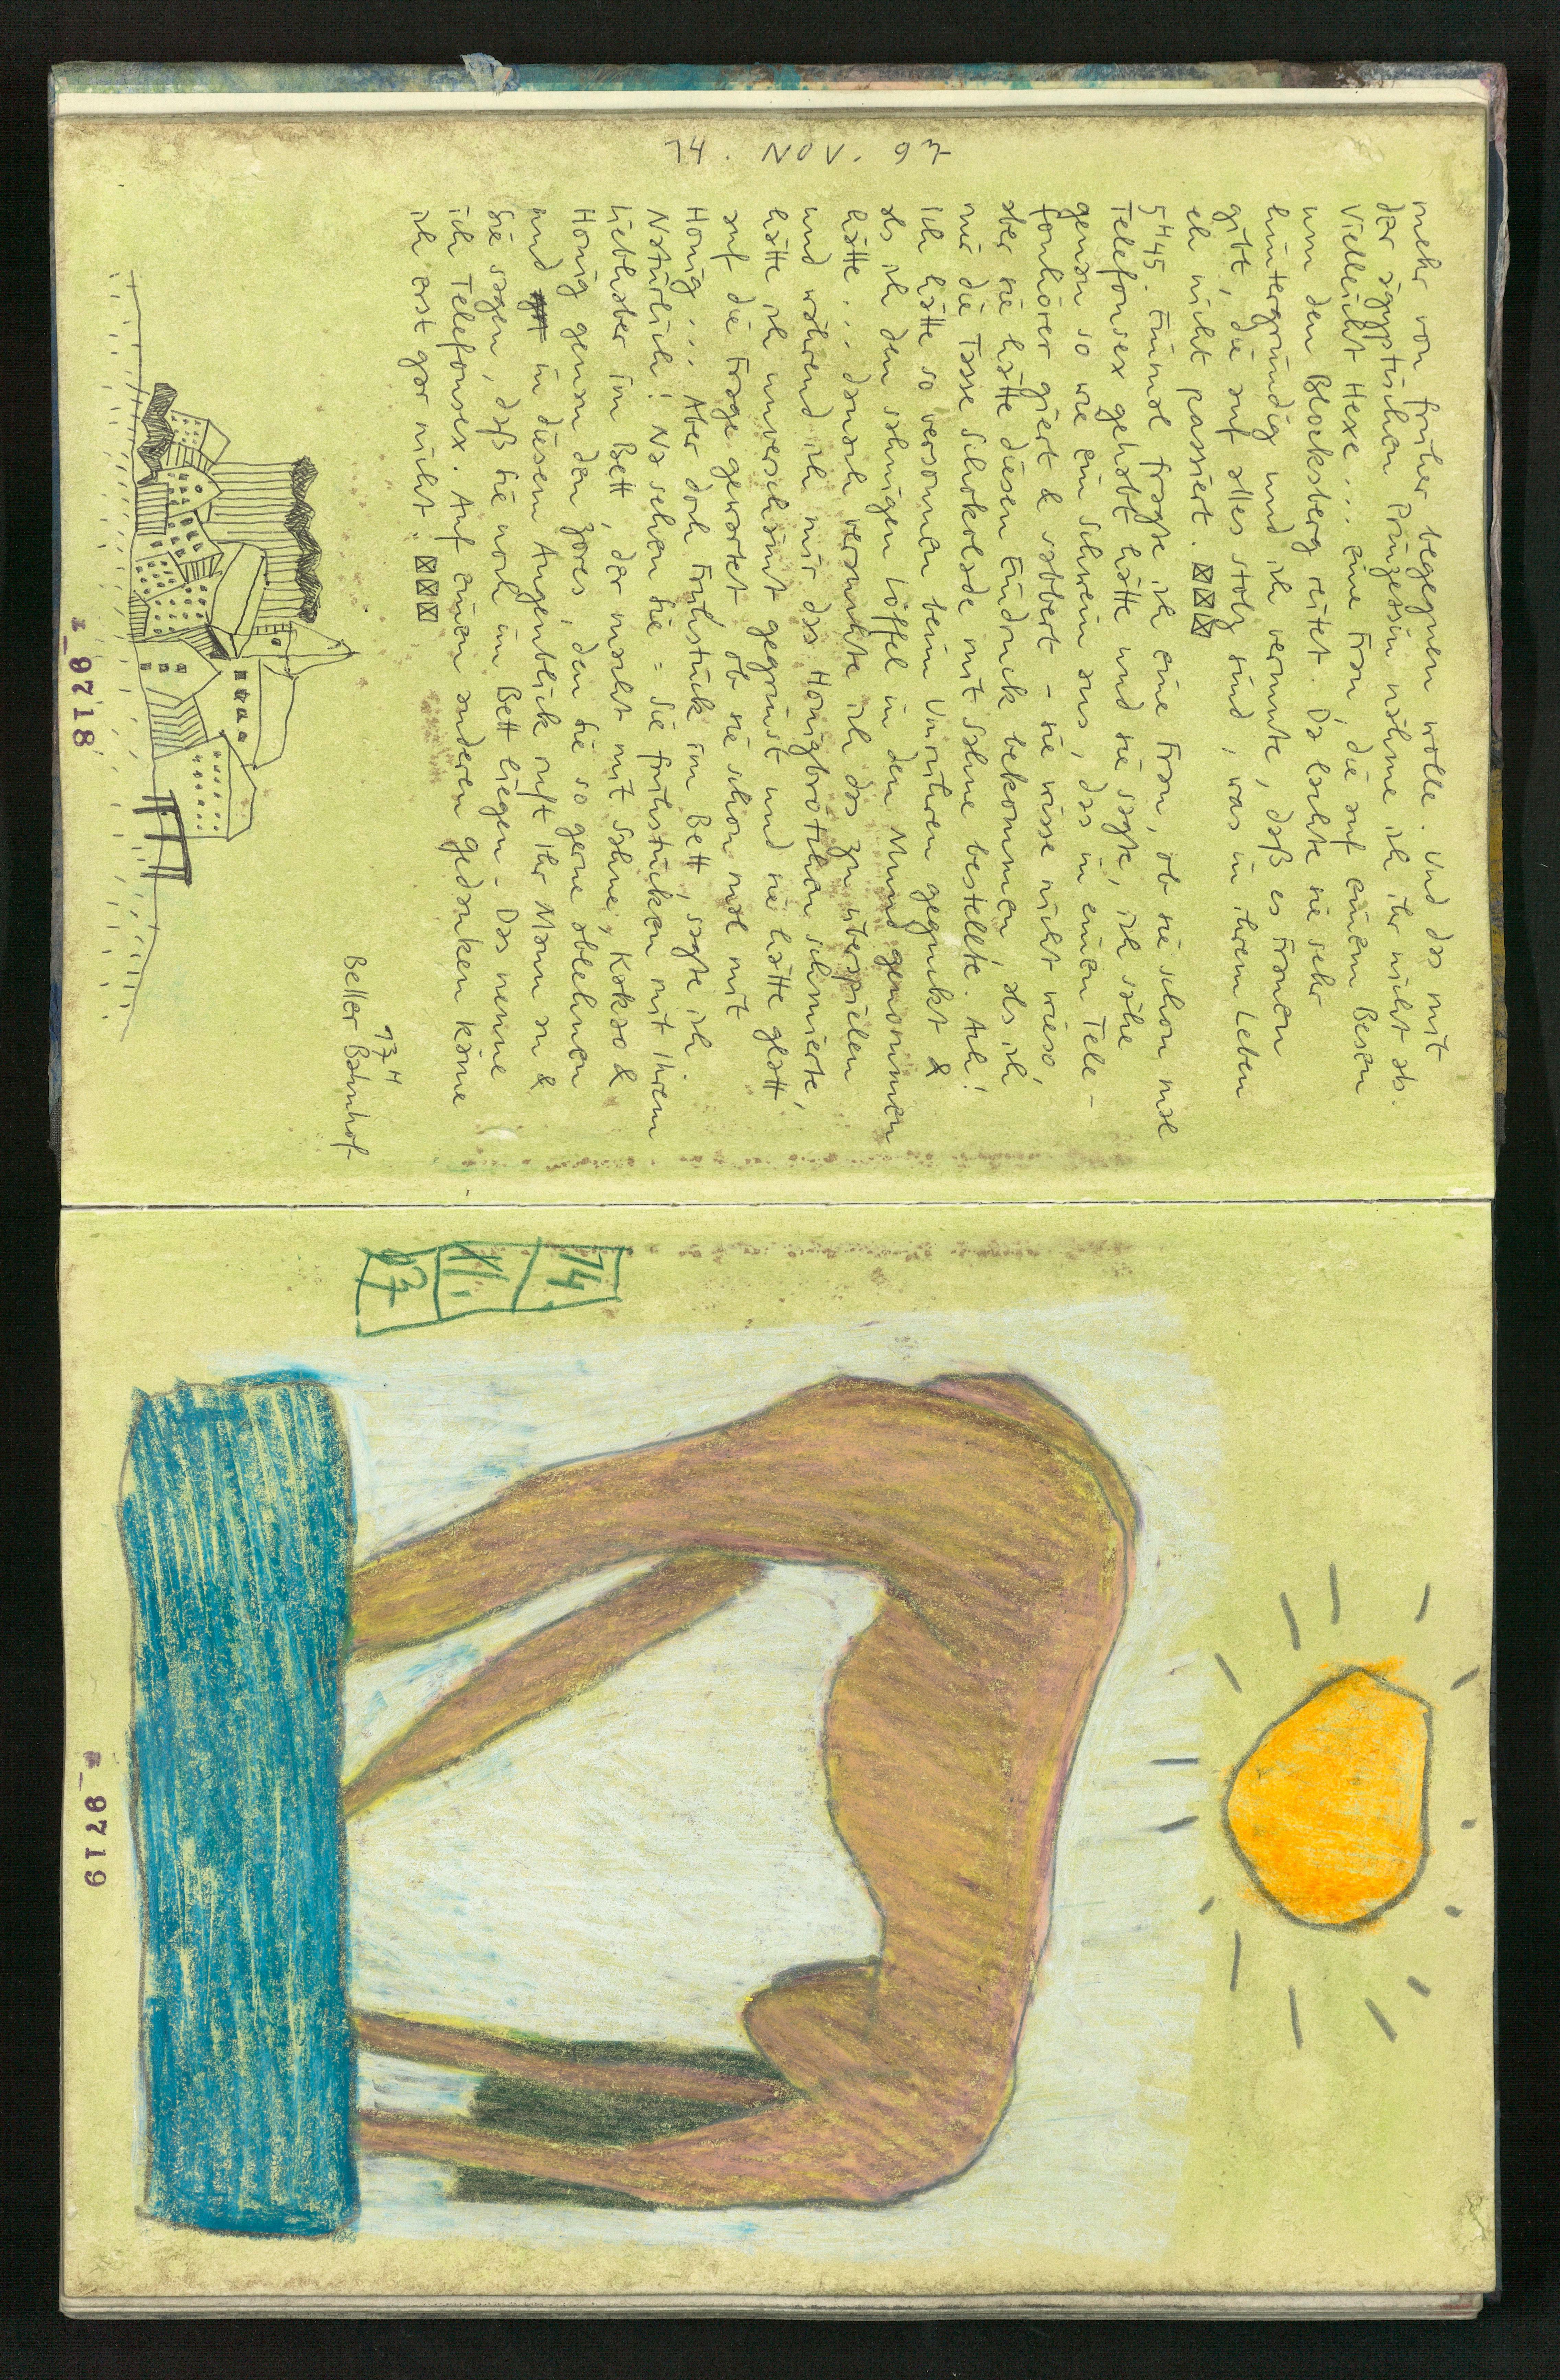 14. NOV. 97
mehr von früher begegnen wolle. Und das mit
der ägyptischen Prinzessin nähme ich ihr nicht ab.
Vielleicht Hexe... eine Frau, die auf einem Besen
um den Blocksberg reitet. Da lachte sie sehr
hintergründig und ich vermute, daß es Frauen
gibt, die auf alles stolz sind, was in ihrem Leben
eh nicht passiert.
5445. Einmal fragte ich eine Frau, ob sie schon mal
Telefonsex gehabt hätte und sie sagte, ich sähe
genau so wie ein Schwein aus, das in einen Tele-
fonhörer giert & sabbert - sie wisse nicht wieso,
aber sie hätte diesen Eindruck bekommen, als ich
mir die Tasse Schokolade mit Sahne bestellte. Ach!
Ich hätte so versonnen beim Umrühren geguckt &
als ich den sahnigen Löffel in den Mund genommen
hätte... danach versuchte ich das zu überspielen
und während ich mir das Honigbrötchen schmierte,
hätte ich unverschämt gegrinst und sie hätte glatt
auf die Frage gewartet ob sie schon mal mit
Honig... Aber doch Frühstück im Bett, sagte ich.
Natürlich! Na sehen Sie = Sie frühstücken mit Ihrem
Liebhaber im Bett, der macht mit Sahne, Kakao &
Honig genau den Zores, den Sie so gerne ablehnen
und in diesem Augenblick ruft Ihr Mann an &
Sie sagen, daß Sie noch im Bett liegen - Das nenne
ich Telefonsex. Auf einen anderen Gedanken käme
ich erst gar nicht.
13 H
Beller Bahnhof
9718
14.
XI.
97
9719